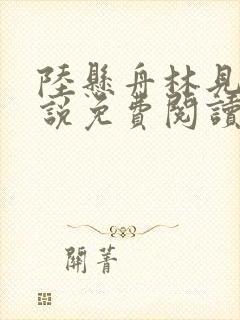 陸懸舟林見
說免費閱讀
關菁